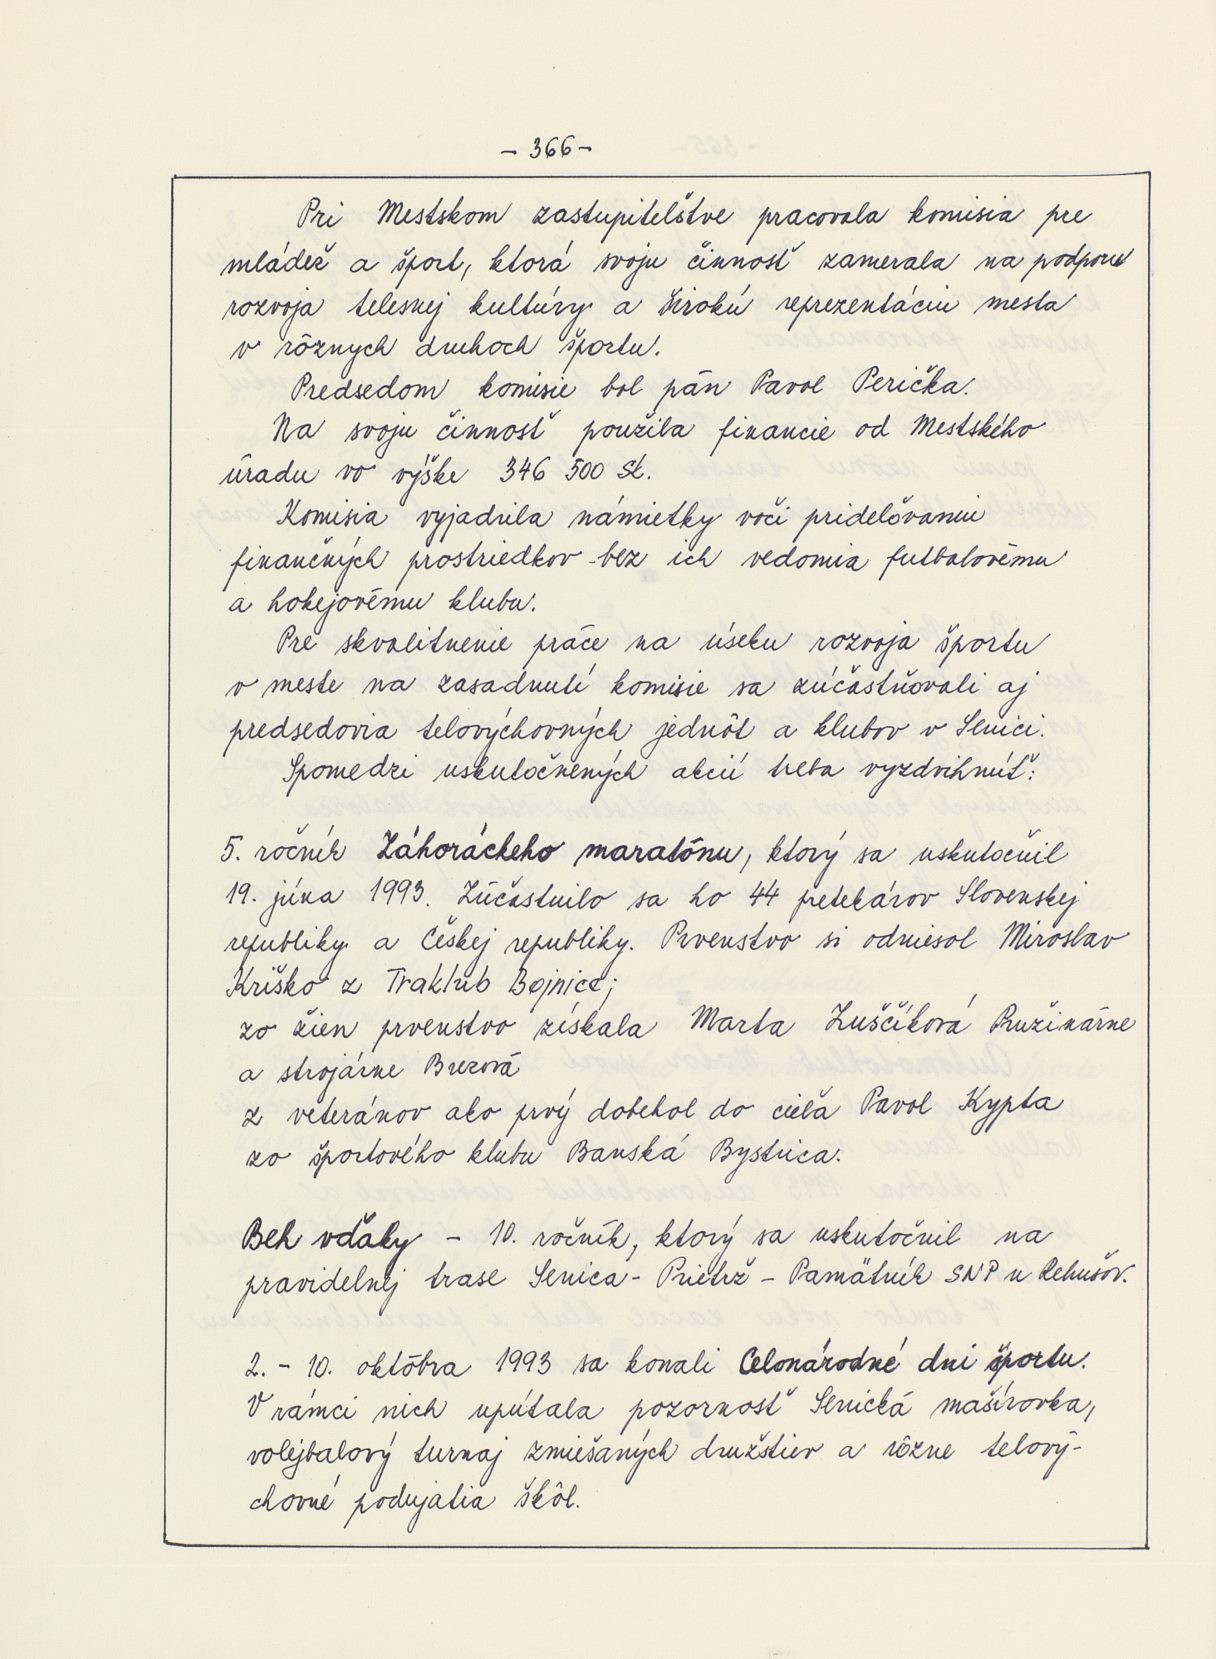 - 366 -
Pri Mestskom zastupiteľstve pracovala komisia pre
mládež a šport, ktorá svoju činnosť zamerala na podporu
rozvoja telesnej kultúry a širokú reprezentáciu mesta
v rôznych druhoch športu.
Predsedom komisie bol pán Pavol Perička.
Na svoju činnosť použila financie od Mestského
úradu vo výške 346 500 Sk.
Komisia vyjadrila námietky voči prideľovaniu
finančných prostriedkov bez ich vedomia futbalovému
a hokejovému klubu.
Pre skvalitnenie práce na úseku rozvoja športu
v meste na zasadnutí komisie sa zúčastňovali aj
predsedovia telovýchovných jednôt a klubov v Senici.
Spomedzi uskutočnených akcií treba vyzdvihnúť:
5. ročník Záhoráckeho maratónu, ktorý sa uskutočnil
19. júna 1993. Zúčastnilo sa ho 44 pretekárov Slovenskej
republiky a Českej republiky. Prvenstvo si odniesol Miroslav
Kriško z Traklub Bojnice;
zo žien prvenstvo získala Marta Luščíková Pružinárne
a strojárne Brezová
z veteránov ako prvý dobehol do cieľa Pavol Kypta
zo športového klubu Banská Bystrica.
Beh vďaky - 10. ročník, ktorý sa uskutočnil na
pravidelnej trase Senica - Prietrž - Pamätník SNP u Rehušov.
2. - 10. októbra 1993 sa konali Celonárodné dni športu.
V rámci nich upútala pozornosť Senická mašírovka,
volejbalový turnaj zmiešaných družstiev a rôzne telový-
chovné podujatia škôl.